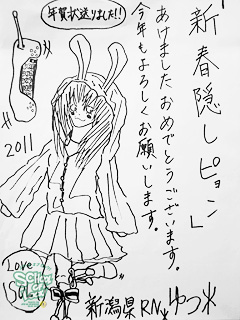 年賀状送りました!!
「新春隠しピョン」
あけましておめでとうございます。
今年もよろしくお願いします。
2011
Love
新潟県 RN ゆつ水